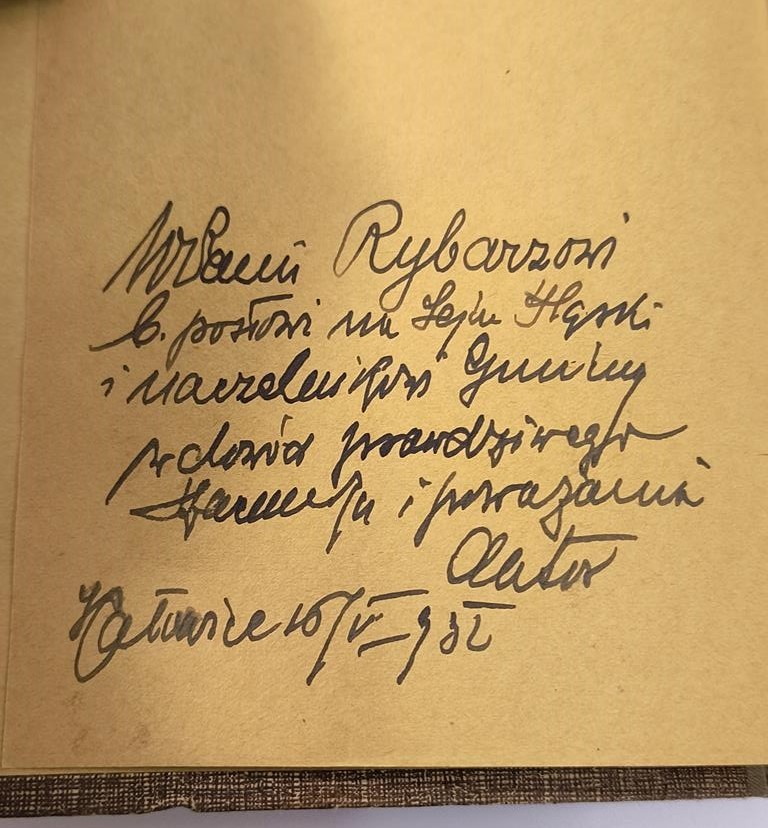 WPanu Rybarzowi
b. posłowi na Sejm Śląski
i naczelnikowi Gminy
w dowód prawdziwego
szacunku i poważania
Autor
Katowice 16/V 932